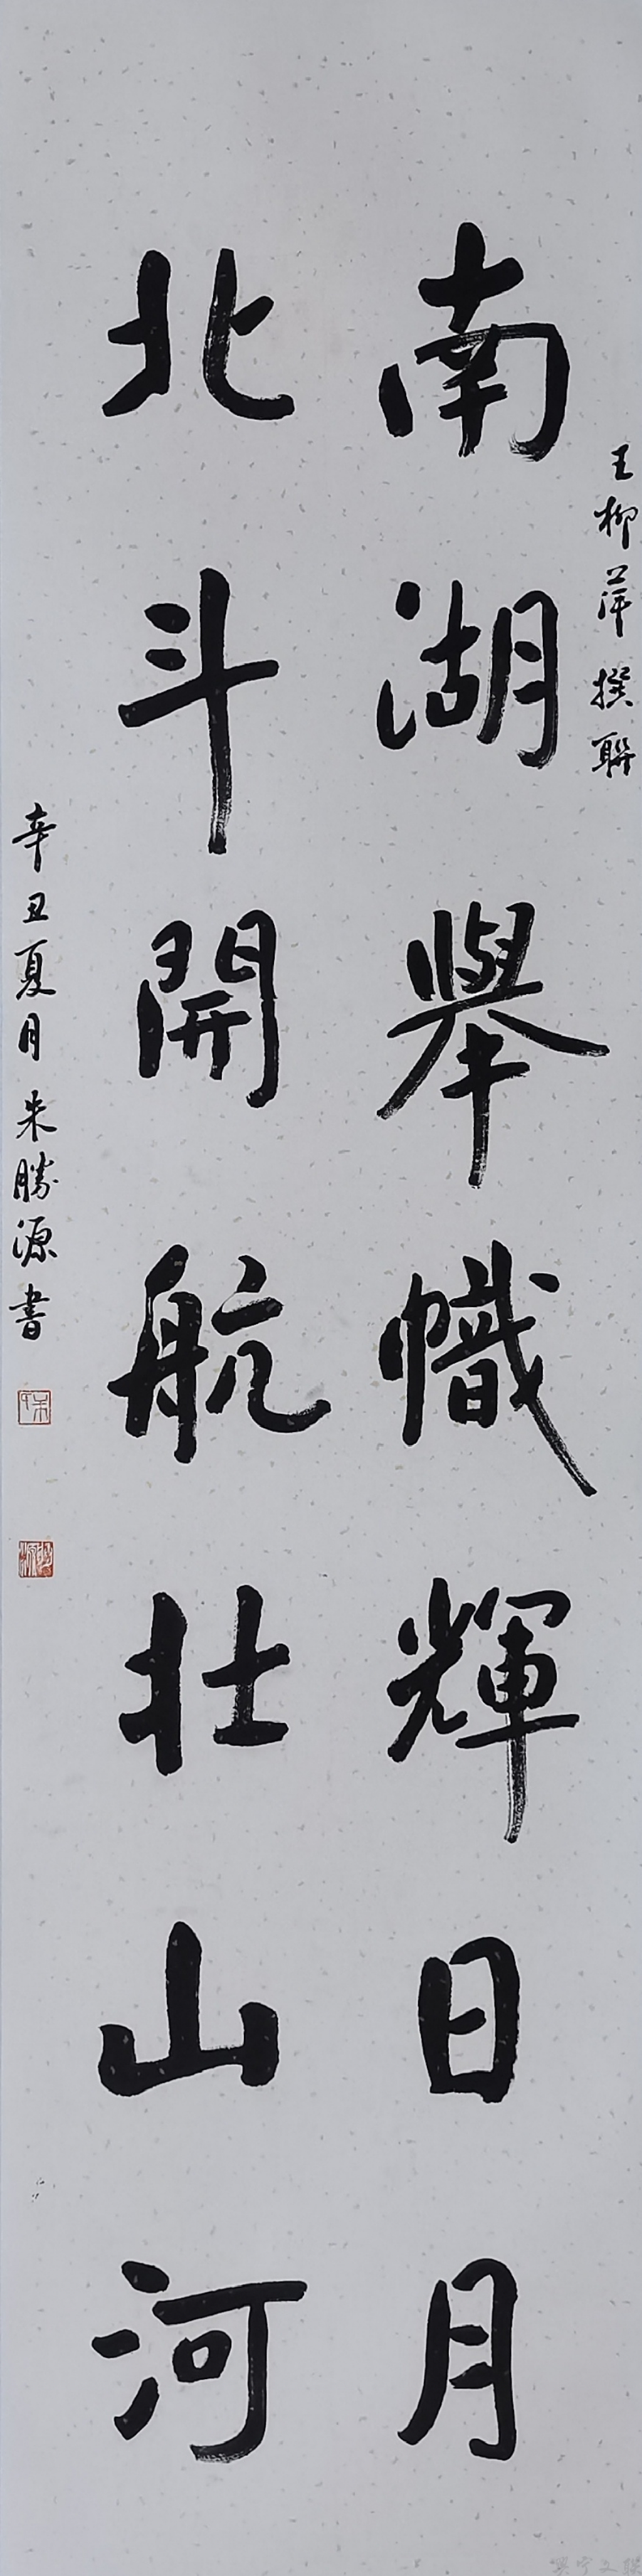 王柳萍撰聯
南湖舉幟輝日月
北斗開航壯山河
辛丑夏月朱勝源書